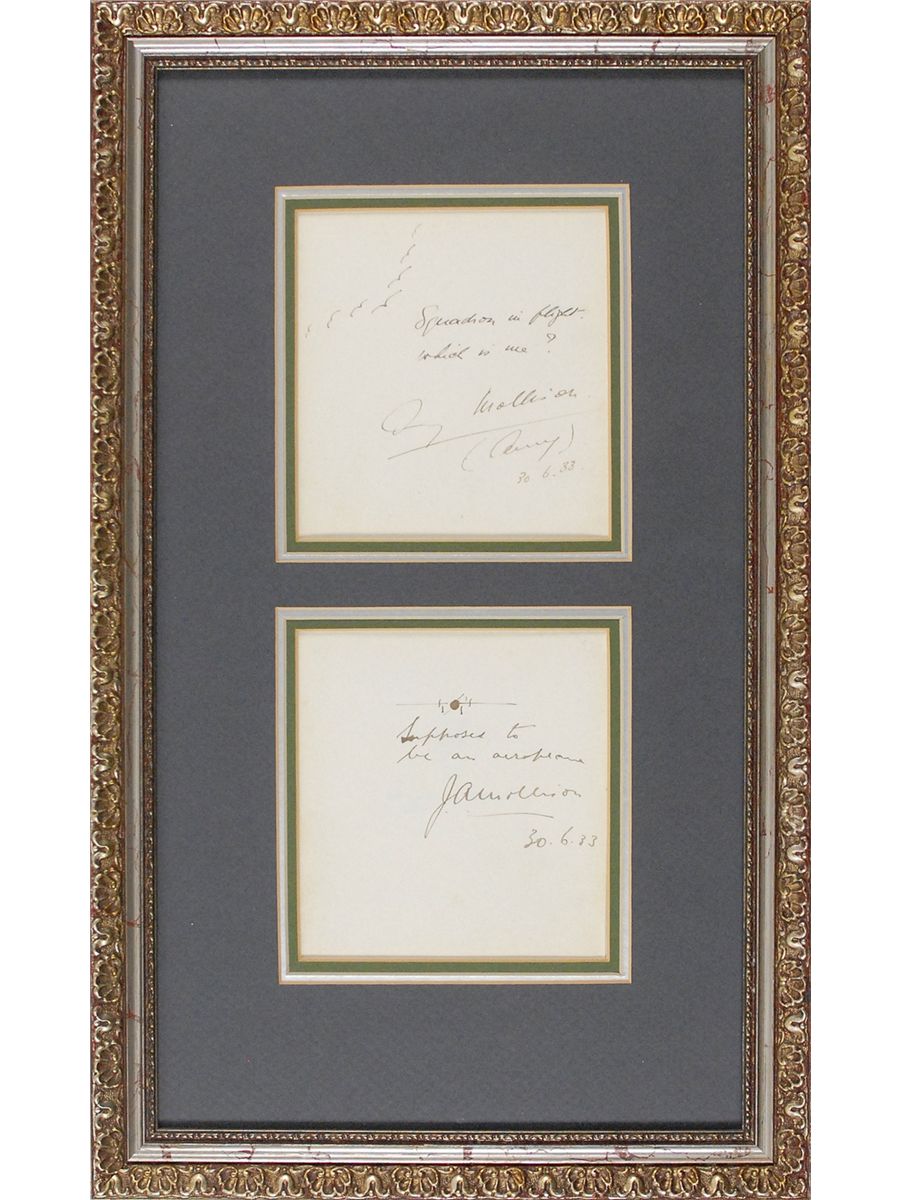 Squadron in flight.
which is me?
Amy Mollison.
(Amy)
30.6.33.
Supposed to
be an aeroplane
J.A. Mollison
30.6.33